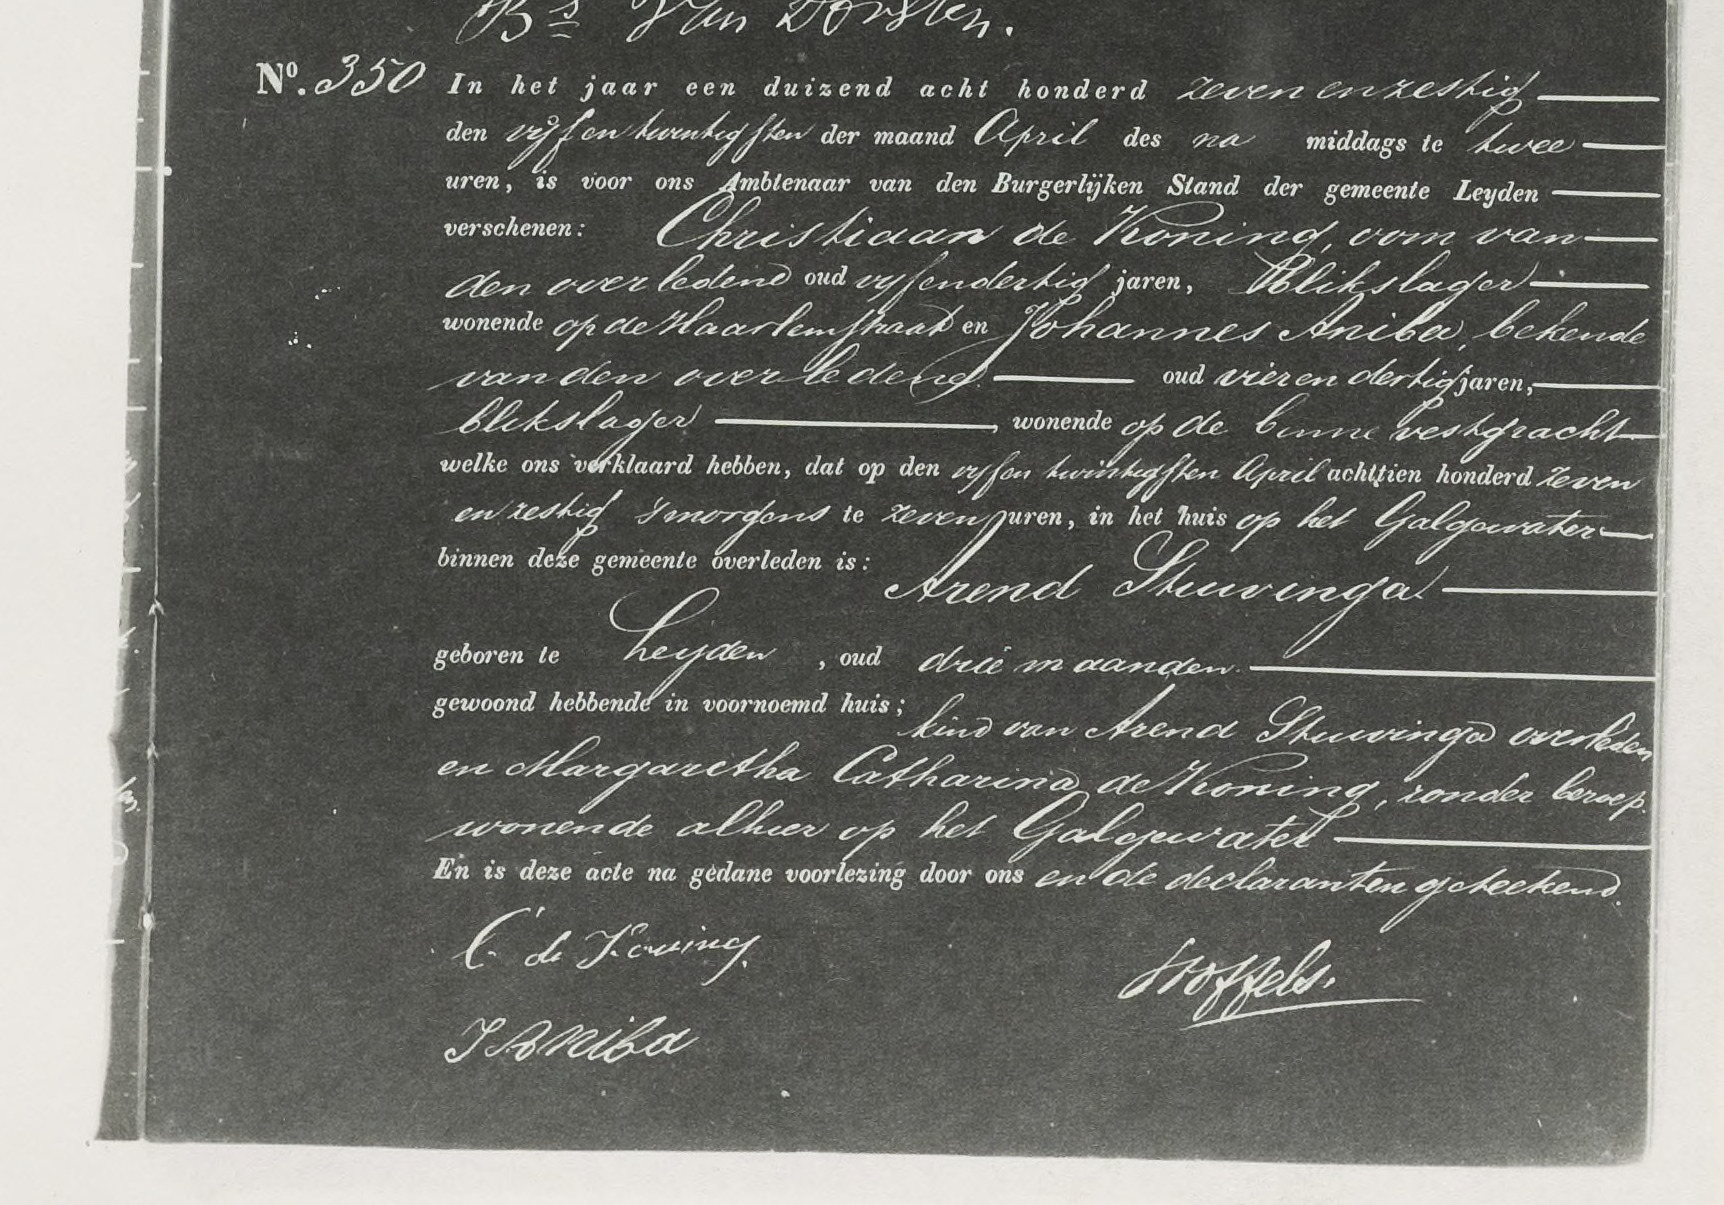 Bs Van Dorsten.
No. 350 In het jaar een duizend acht honderd zeven en zestig
den vijf en twintigsten der maand April des na middags te twee
uren, is voor ons Ambtenaar van den Burgerlijken Stand der gemeente Leyden
verschenen: Christiaan de Koning, oom van
den overledene oud vijfendertig jaren, Blikslager
wonende op de Haarlemstraat en Johannes Aniba, bekende
van den overledene. oud vier en dertig jaren,
blikslager, wonende op de binne vestgracht
welke ons verklaard hebben, dat op den vijf en twintigsten April achttien honderd zeven
en zestig 's morgens te zeven uren, in het huis op het Galgewater
binnen deze gemeente overleden is:
Arend Stuvinga
geboren te Leijden, oud drie maanden.
gewoond hebbende in voornoemd huis;
kind van Arend Stuvinga overleden
en Margaretha Catharina de Koning, zonder beroep.
wonende alhier op het Galgewater
En is deze acte na gedane voorlezing door ons en de declaranten geteekend.
C. de Koning.
Stoffels.
J Aniba